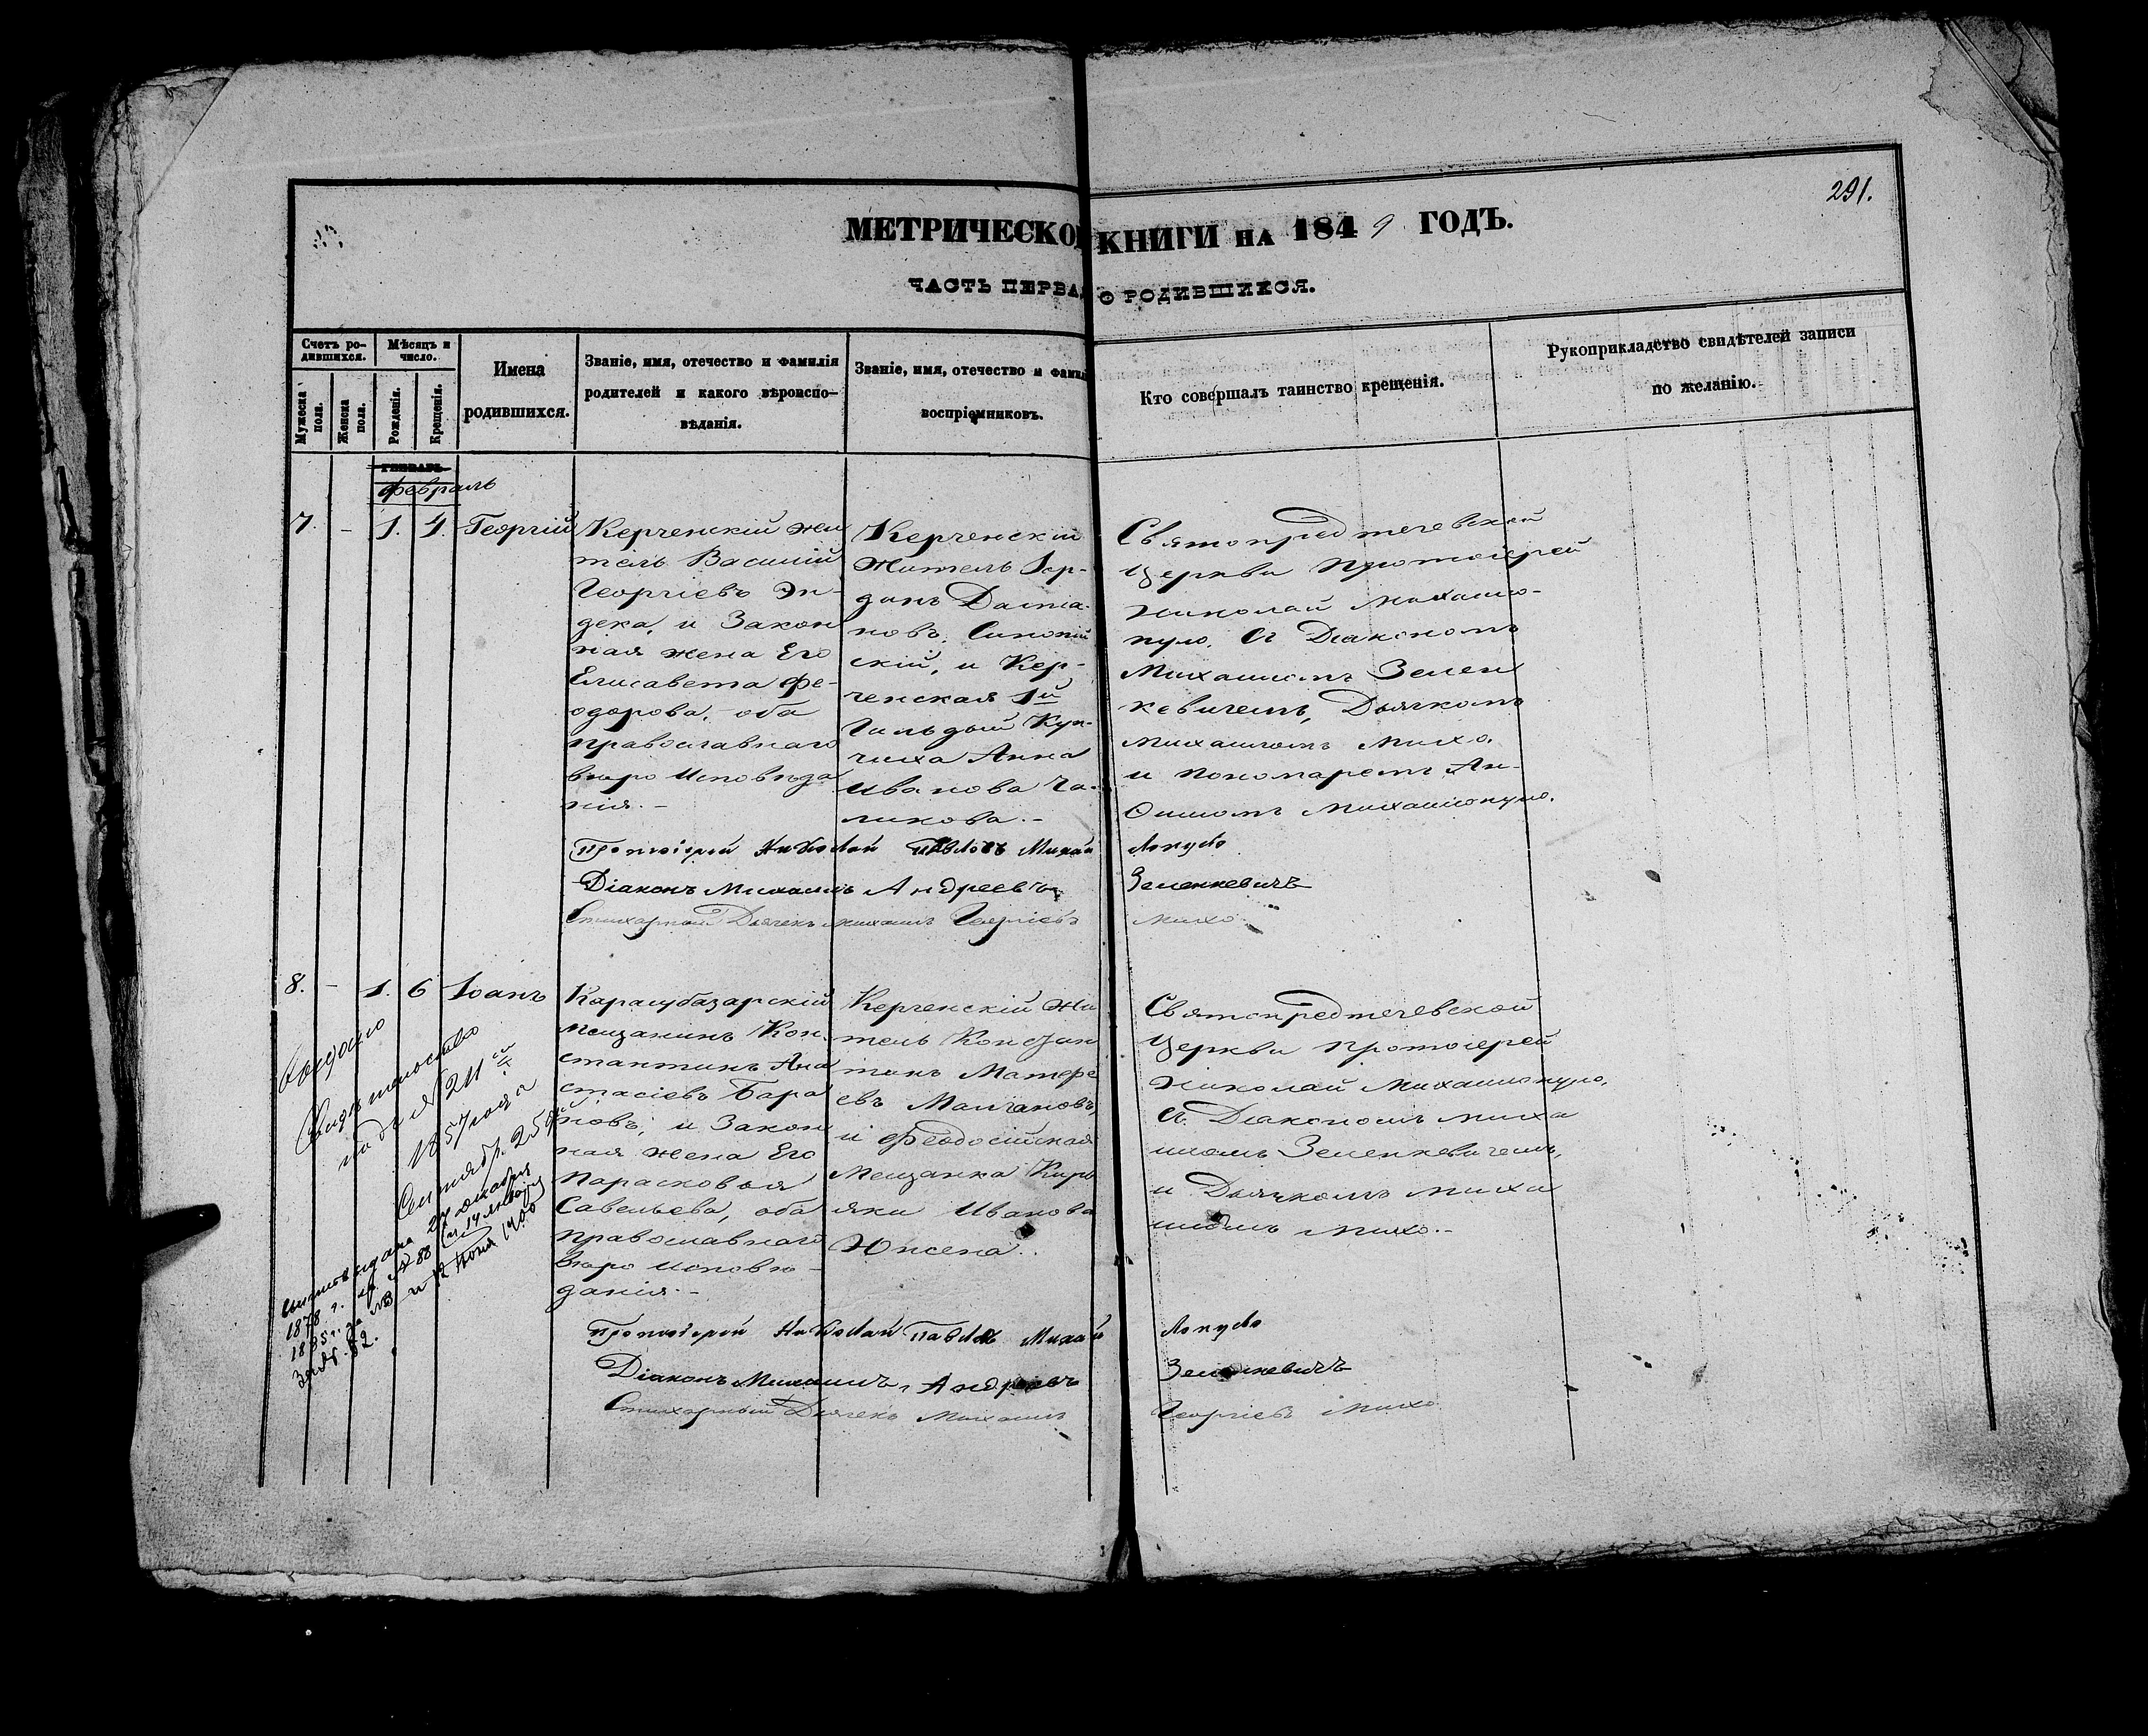 291.
МЕТРИЧЕСКОЙ КНИГИ НА 1849 ГОДЪ.
ЧАСТЬ ПЕРВАЯ О РОДИВШИХСЯ.
Счетъ ро-
дившихся.
Мужеска пола.
Женска пола.
Мѣсяцъ и
число.
Рожденія.
Крещенія.
Имена
родившихся.
Званіе, имя, отечество и фамилія
родителей и какого вѣроиспо-
вѣданія.
Званіе, имя, отечество и фамил
воспріемниковъ.
Кто совершалъ таинство крещенія.
Рукоприкладство свидѣтелей записи
по желанію.
ГЕНВАРЬ
Февраль
7. - 1. 4. Георгій
Керченскій жи
тель Василій
Георгіевъ Эн-
дека, и Закон
ная жена Его
Елисавета Фе-
одорова, оба
православнаго
вѣро исповѣда
нія.-
Керченскій
Житель Іор-
данъ Дамиа-
новъ,
скій, и Кер-
ченская 1й
Гильдіи Куп-
чиха Анна
Иванова Га-
ликова.-
Святопредтечевской
Церкви Протоіерей
Николай Михаило-
пуло, съ Діакономъ
Михаиломъ Зелен
кевичемъ, Дьячкомъ
Михаиломъ Михо,
и пономаремъ Ан-
Михаилопуло.
Протоіерей Николай Павловъ Михаи лопуло
Діаконъ Михаилъ Андреевъ Зеленкевичъ
Стихарный Дьячекъ Михаилъ Георгіевъ Михо
8. - 1. 6 Іоанъ
Карасубазарскій
мещанинъ Кон
стантинъ Ана
стасіевъ Бара
новъ, и Закон
ная жена Его
Парасковья
Савельева, оба
православнаго
вѣро исповѣ-
данія.-
Керченскій жи
тель Констан
тинъ Матфе
евъ Малгановъ,
и Феодосійская
мещанка Кирі
яки Иванова
Святопредтечевской
Церкви Протоіерей
Николай Михаилопуло,
съ Діакономъ Миха
иломъ Зеленкевичемъ,
и Дьячкомъ Миха
иломъ Михо.-
Выдано
Свидѣтельство
подъ № 211
1857 года
Сентябр. 25
выдана 27 декабря
1878 г.
1885 г. за № 88
и 12 Іюня 1900
Протоіерей Николай Павловъ Михаи лопуло
Діаконъ Михаилъ Андреевъ Зеленкевичъ
Стихарный Дьячекъ Михаилъ Георгіевъ Михо